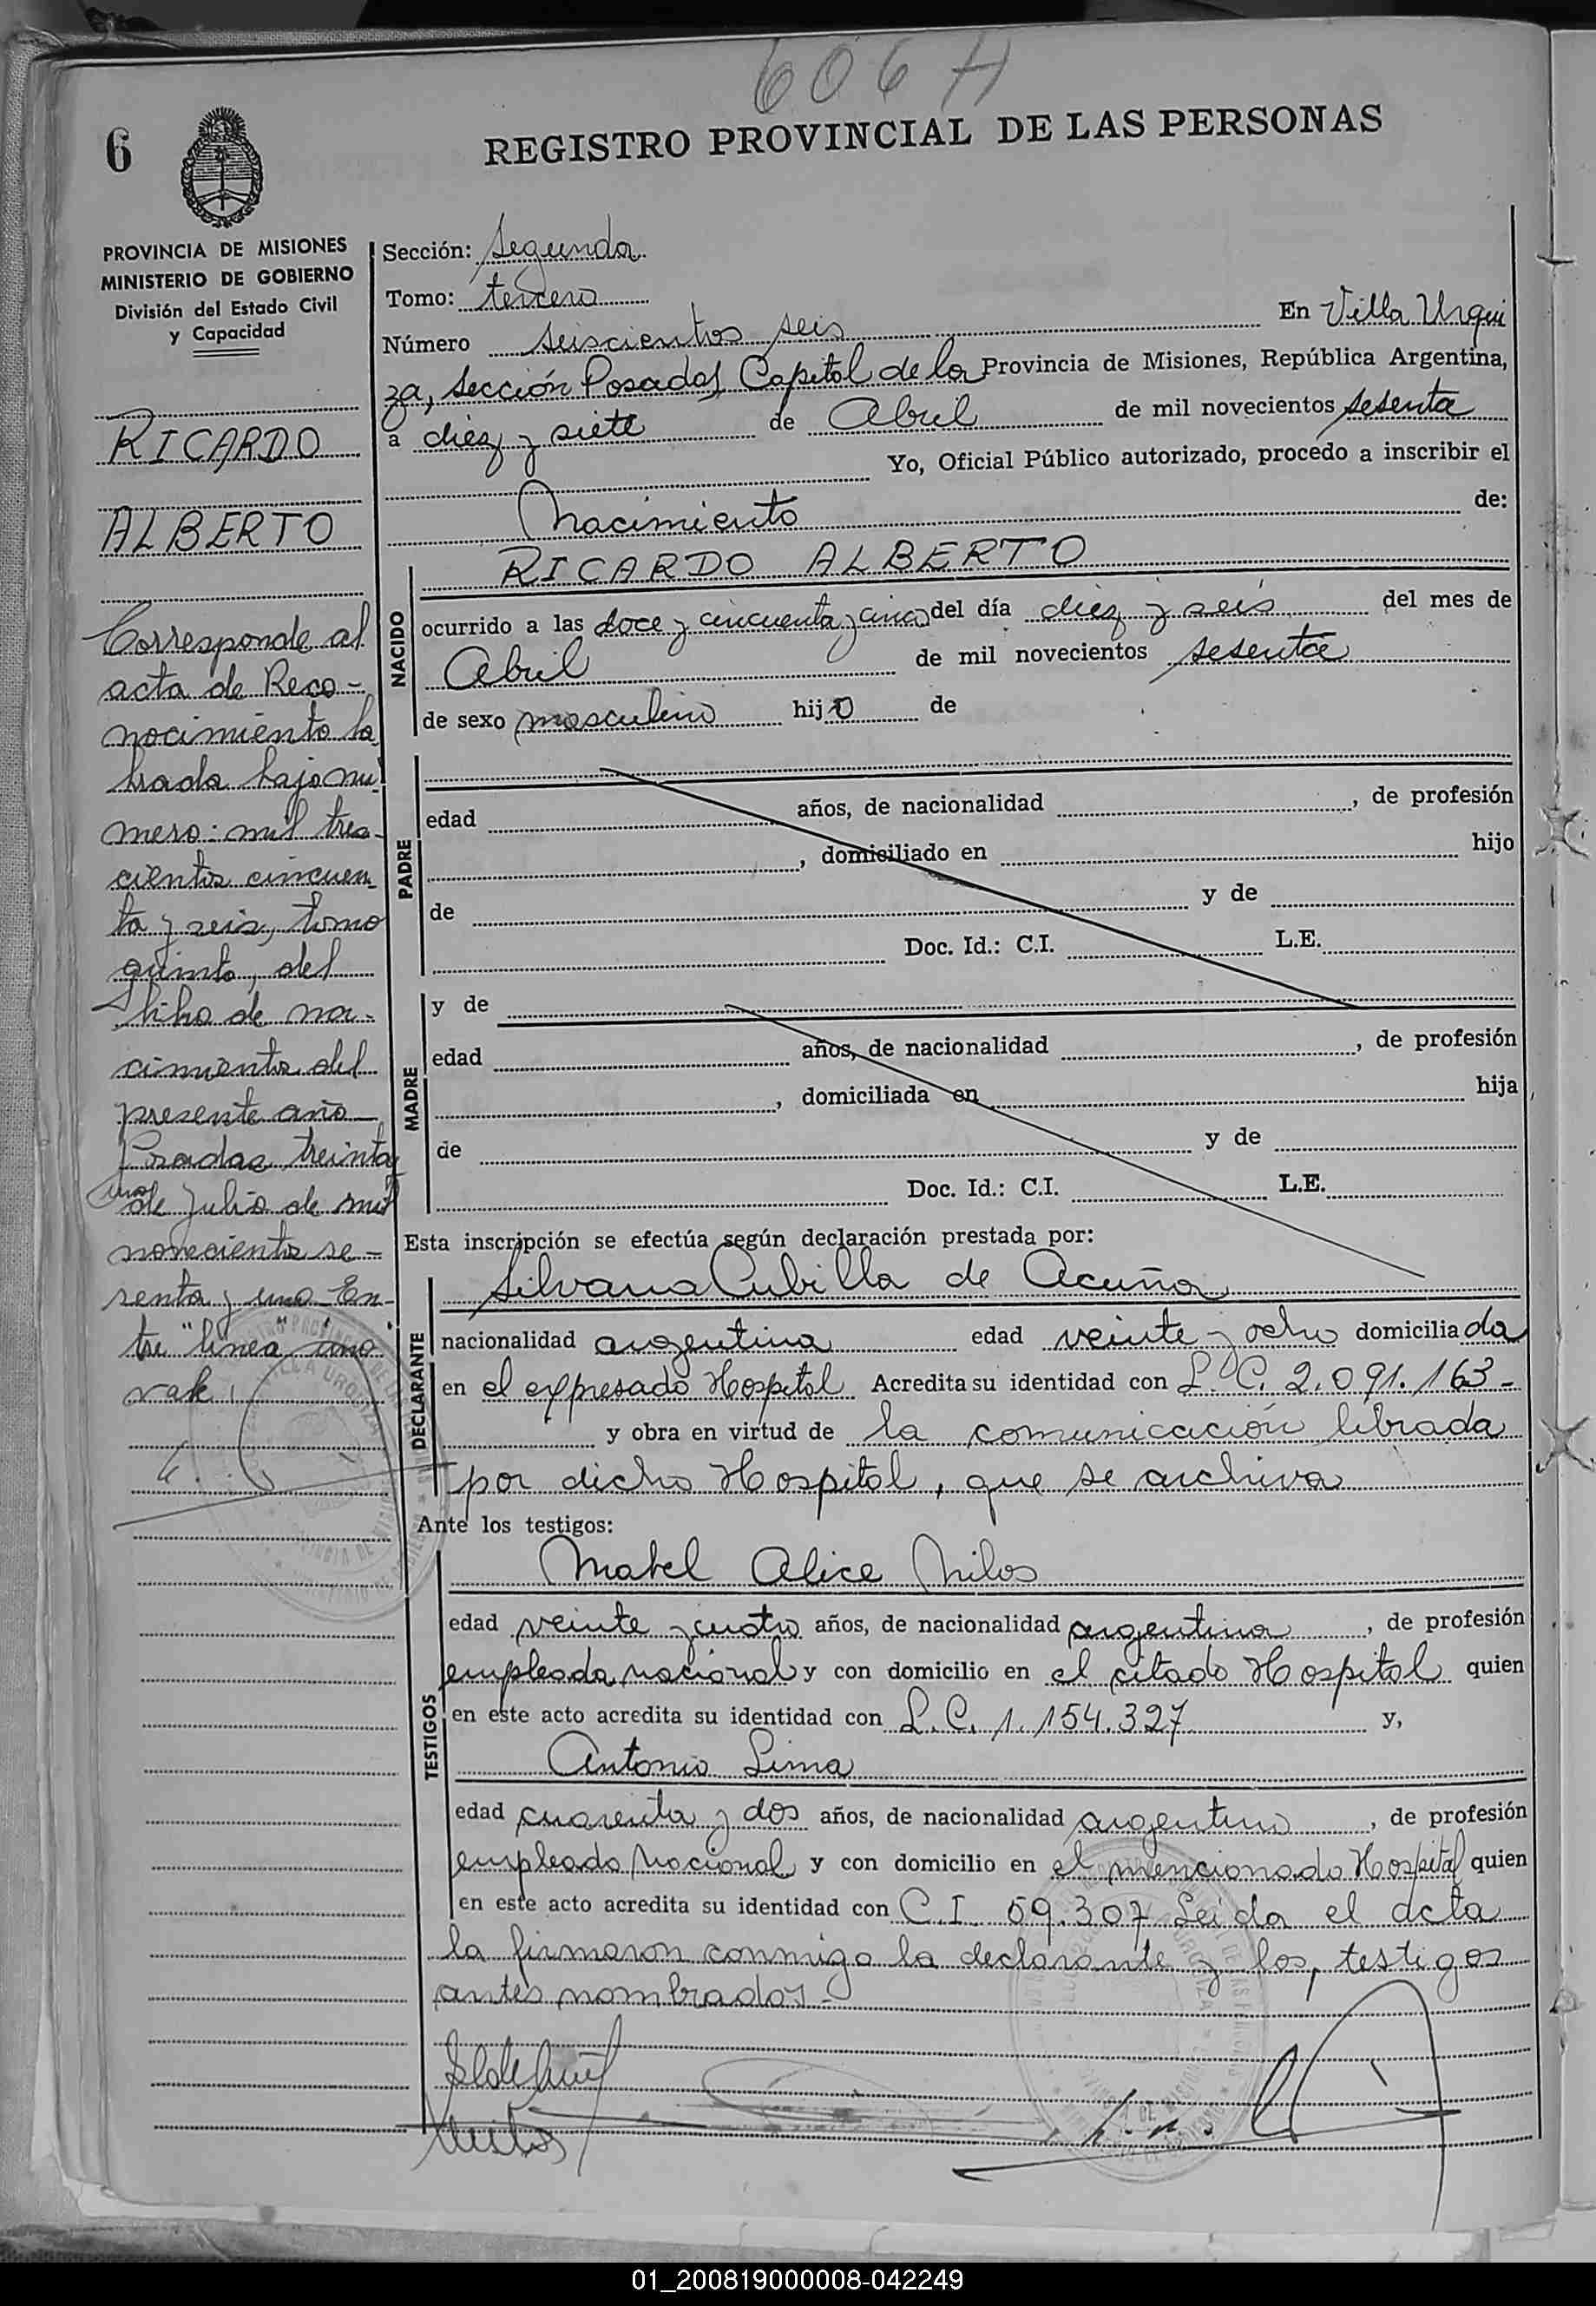 606 H
6
REGISTRO PROVINCIAL DE LAS PERSONAS
PROVINCIA DE MISIONES
MINISTERIO DE GOBIERNO
División del Estado Civil
y Capacidad
RICARDO
ALBERTO
Corresponde al
acta de Reco-
nocimiento la
brada bajo nú
mero: mil tres-
cientos cincuen
ta y seis, tomo
quinto, del
libro de na-
cimientos del
presente año
Posadas treinta
uno
de Julio de mil
novecientos se-
senta y uno En-
tre "línea" "uno"
vale
Sección: Segunda
Tomo: tercero
Número seiscientos seis En Villa Urqui
za, sección Posadas, Capital de la Provincia de Misiones, República Argentina,
a diez y siete de Abril de mil novecientos sesenta
Yo, Oficial Público autorizado, procedo a inscribir el
Nacimiento de:
NACIDO
RICARDO ALBERTO
ocurrido a las doce y cincuenta y cinco del día diez y seis del mes de
Abril de mil novecientos sesenta
de sexo masculino hijo de
PADRE
edad años, de nacionalidad , de profesión
, domiciliado en hijo
de y de
Doc. Id.: C.I. L.E.
MADRE
y de
edad años, de nacionalidad , de profesión
, domiciliada en hija
de y de
Doc. Id.: C.I. L.E.
Esta inscripción se efectúa según declaración prestada por:
DECLARANTE
Silvana Cubilla de Acuña
nacionalidad argentina edad veinte y ocho domiciliada
en el expresado Hospital Acredita su identidad con L.C. 2.091.163-
y obra en virtud de la comunicación librada
por dicho Hospital, que se archiva
Ante los testigos:
TESTIGOS
Mabel Alice Milos
edad veinte y cuatro años, de nacionalidad argentina , de profesión
empleada nacional y con domicilio en el citado Hospital quien
en este acto acredita su identidad con L.C. 1.154.327 y,
Antonio Lima
edad cuarenta y dos años, de nacionalidad argentino , de profesión
empleado Nacional y con domicilio en el mencionado Hospital quien
en este acto acredita su identidad con C.I. 59.307 Leída el acta
la firmaron conmigo la declarante y los, testigos
antes nombrados.-
Milos
01_200819000008-042249